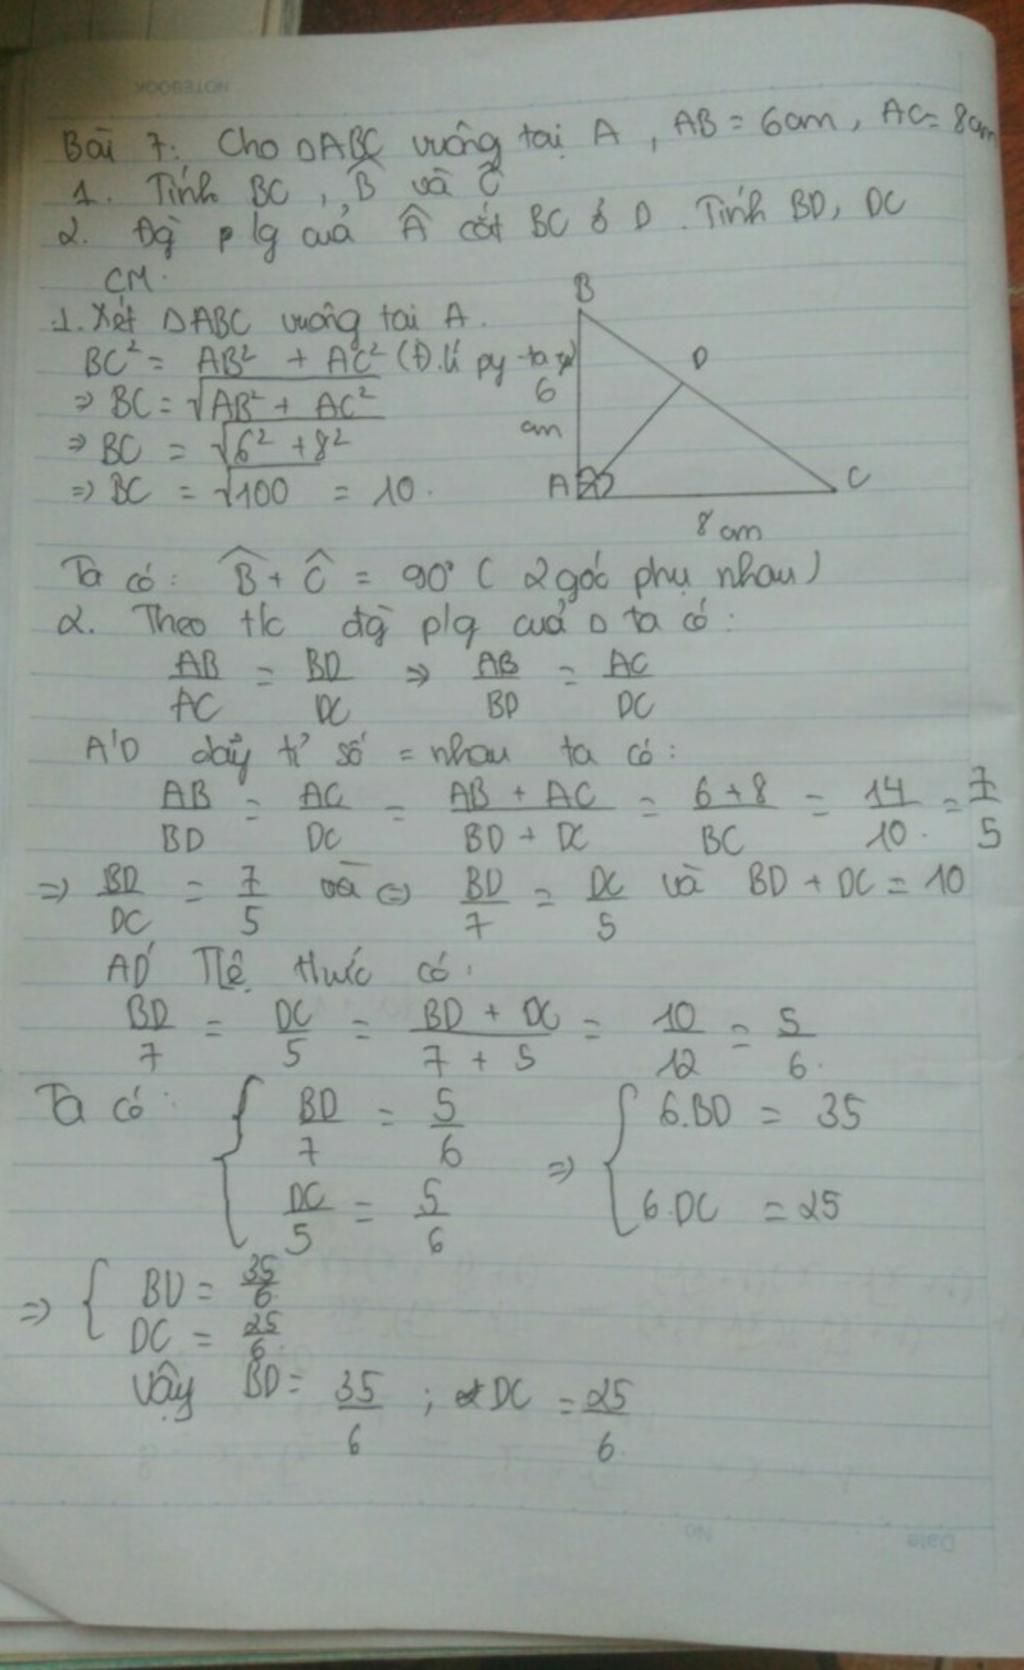 NOTEBOOK
Bài 7: Cho ΔABC vuông tại A, AB = 6cm, AC = 8cm
1. Tính BC, B̂ và Ĉ
2. Đg̀ p/g cuả Â cắt BC ở D. Tính BD, DC
CM.
1. Xét ΔABC vuông tai A.
BC² = AB² + AC² (Đ.lí py-ta-)
⇒ BC = √AB² + AC²
⇒ BC = √6² + 8²
⇒ BC = √100 = 10.
B
D
6
cm
A
C
8cm
Ta có: B̂ + Ĉ = 90° (2 góc phụ nhau)
2. Theo t/c đg̀ p/g cuả Δ ta có:
AB/AC = BD/DC ⇒ AB/BD = AC/DC
A'D dãy tỉ số = nhau ta có:
AB/BD = AC/DC = AB + AC/BD + DC = 6+8/BC = 14/10. = 7/5
⇒ BD/DC = 7/5 và ⇔ BD/7 = DC/5 và BD + DC = 10
AD' Tlệ thức có:
BD/7 = DC/5 = BD + DC/7 + 5 = 10/12 = 5/6.
Ta có: { BD/7 = 5/6 ⇒ { 6.BD = 35
DC/5 = 5/6 6.DC = 25
⇒ { BD = 35/6
DC = 25/6.
Vậy BD = 35/6 ; DC = 25/6.
Date No